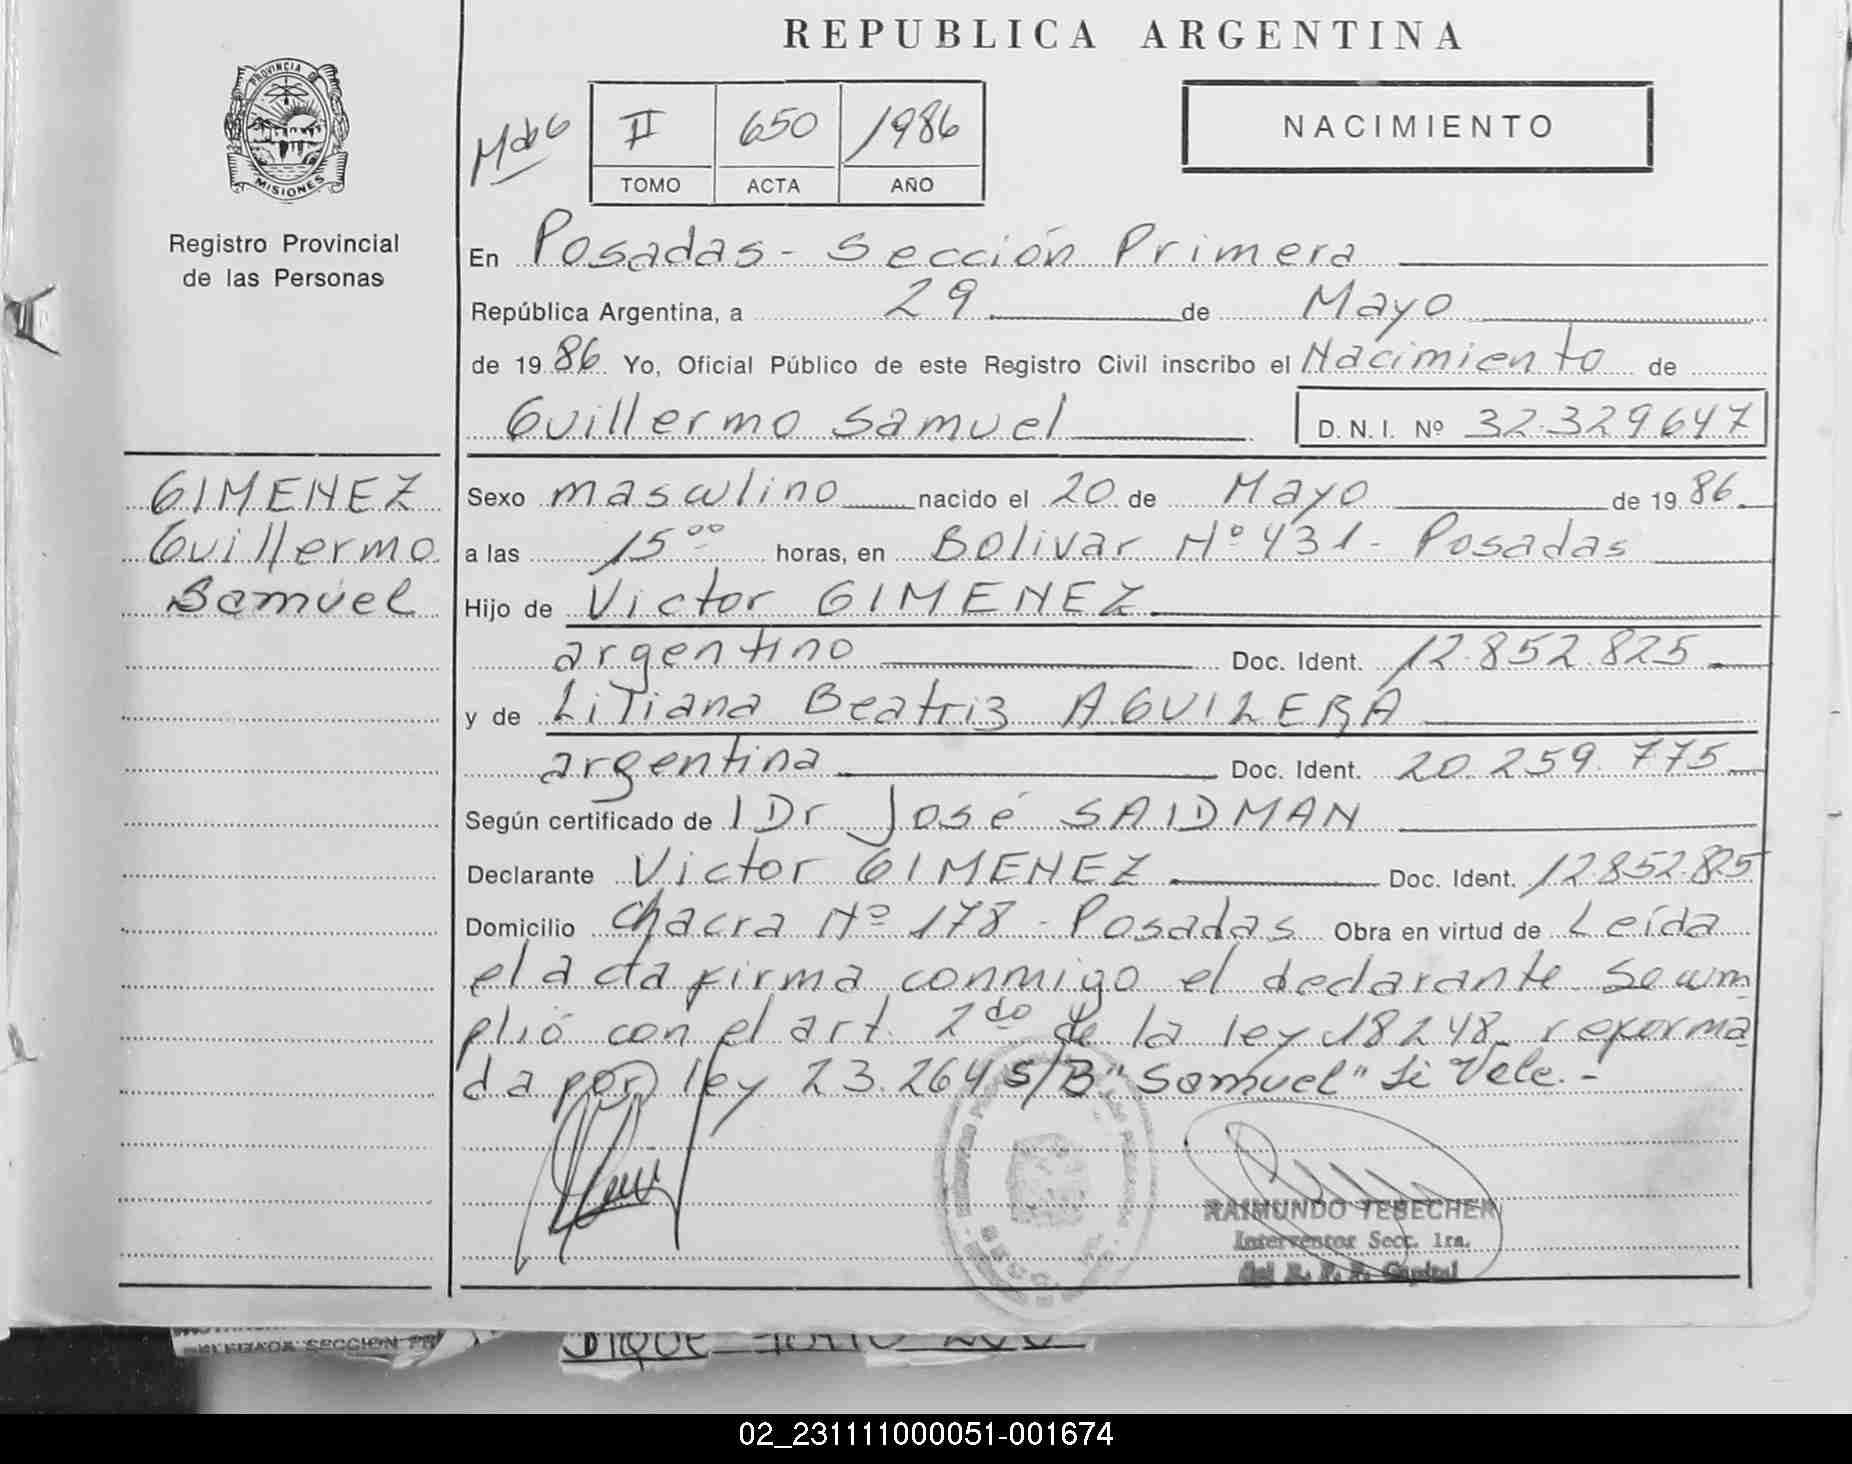 REPUBLICA ARGENTINA
PROVINCIA DE
MISIONES
Registro Provincial
de las Personas
II 650 1986
TOMO ACTA AÑO
NACIMIENTO
En Posadas - Sección Primera
República Argentina, a 29 de Mayo
de 1986 Yo, Oficial Público de este Registro Civil inscribo el Nacimiento de
Guillermo Samuel D.N.I. Nº 32.329.647
GIMENEZ
Guillermo
Samuel
Sexo masculino nacido el 20 de Mayo de 1986
a las 15°° horas, en Bolivar Nº 431 - Posadas
Hijo de Victor GIMENEZ
argentino Doc. Ident. 12.852.825
y de Liliana Beatriz AGUILERA
argentina Doc. Ident. 20.259.775
Según certificado de Dr José SAIDMAN
Declarante Victor GIMENEZ Doc. Ident. 12.852.825
Domicilio Chacra Nº 178 - Posadas Obra en virtud de Leída
el acta firma conmigo el declarante Se cum
plió con el art. 2do de la ley 18248 reforma
da por ley 23.264 S/B "Samuel" Si Vale.-
RAIMUNDO TEBECHER
Interventor Secc. 1ra.
del R. P. P. Capital
SECCION
02_231111000051-001674